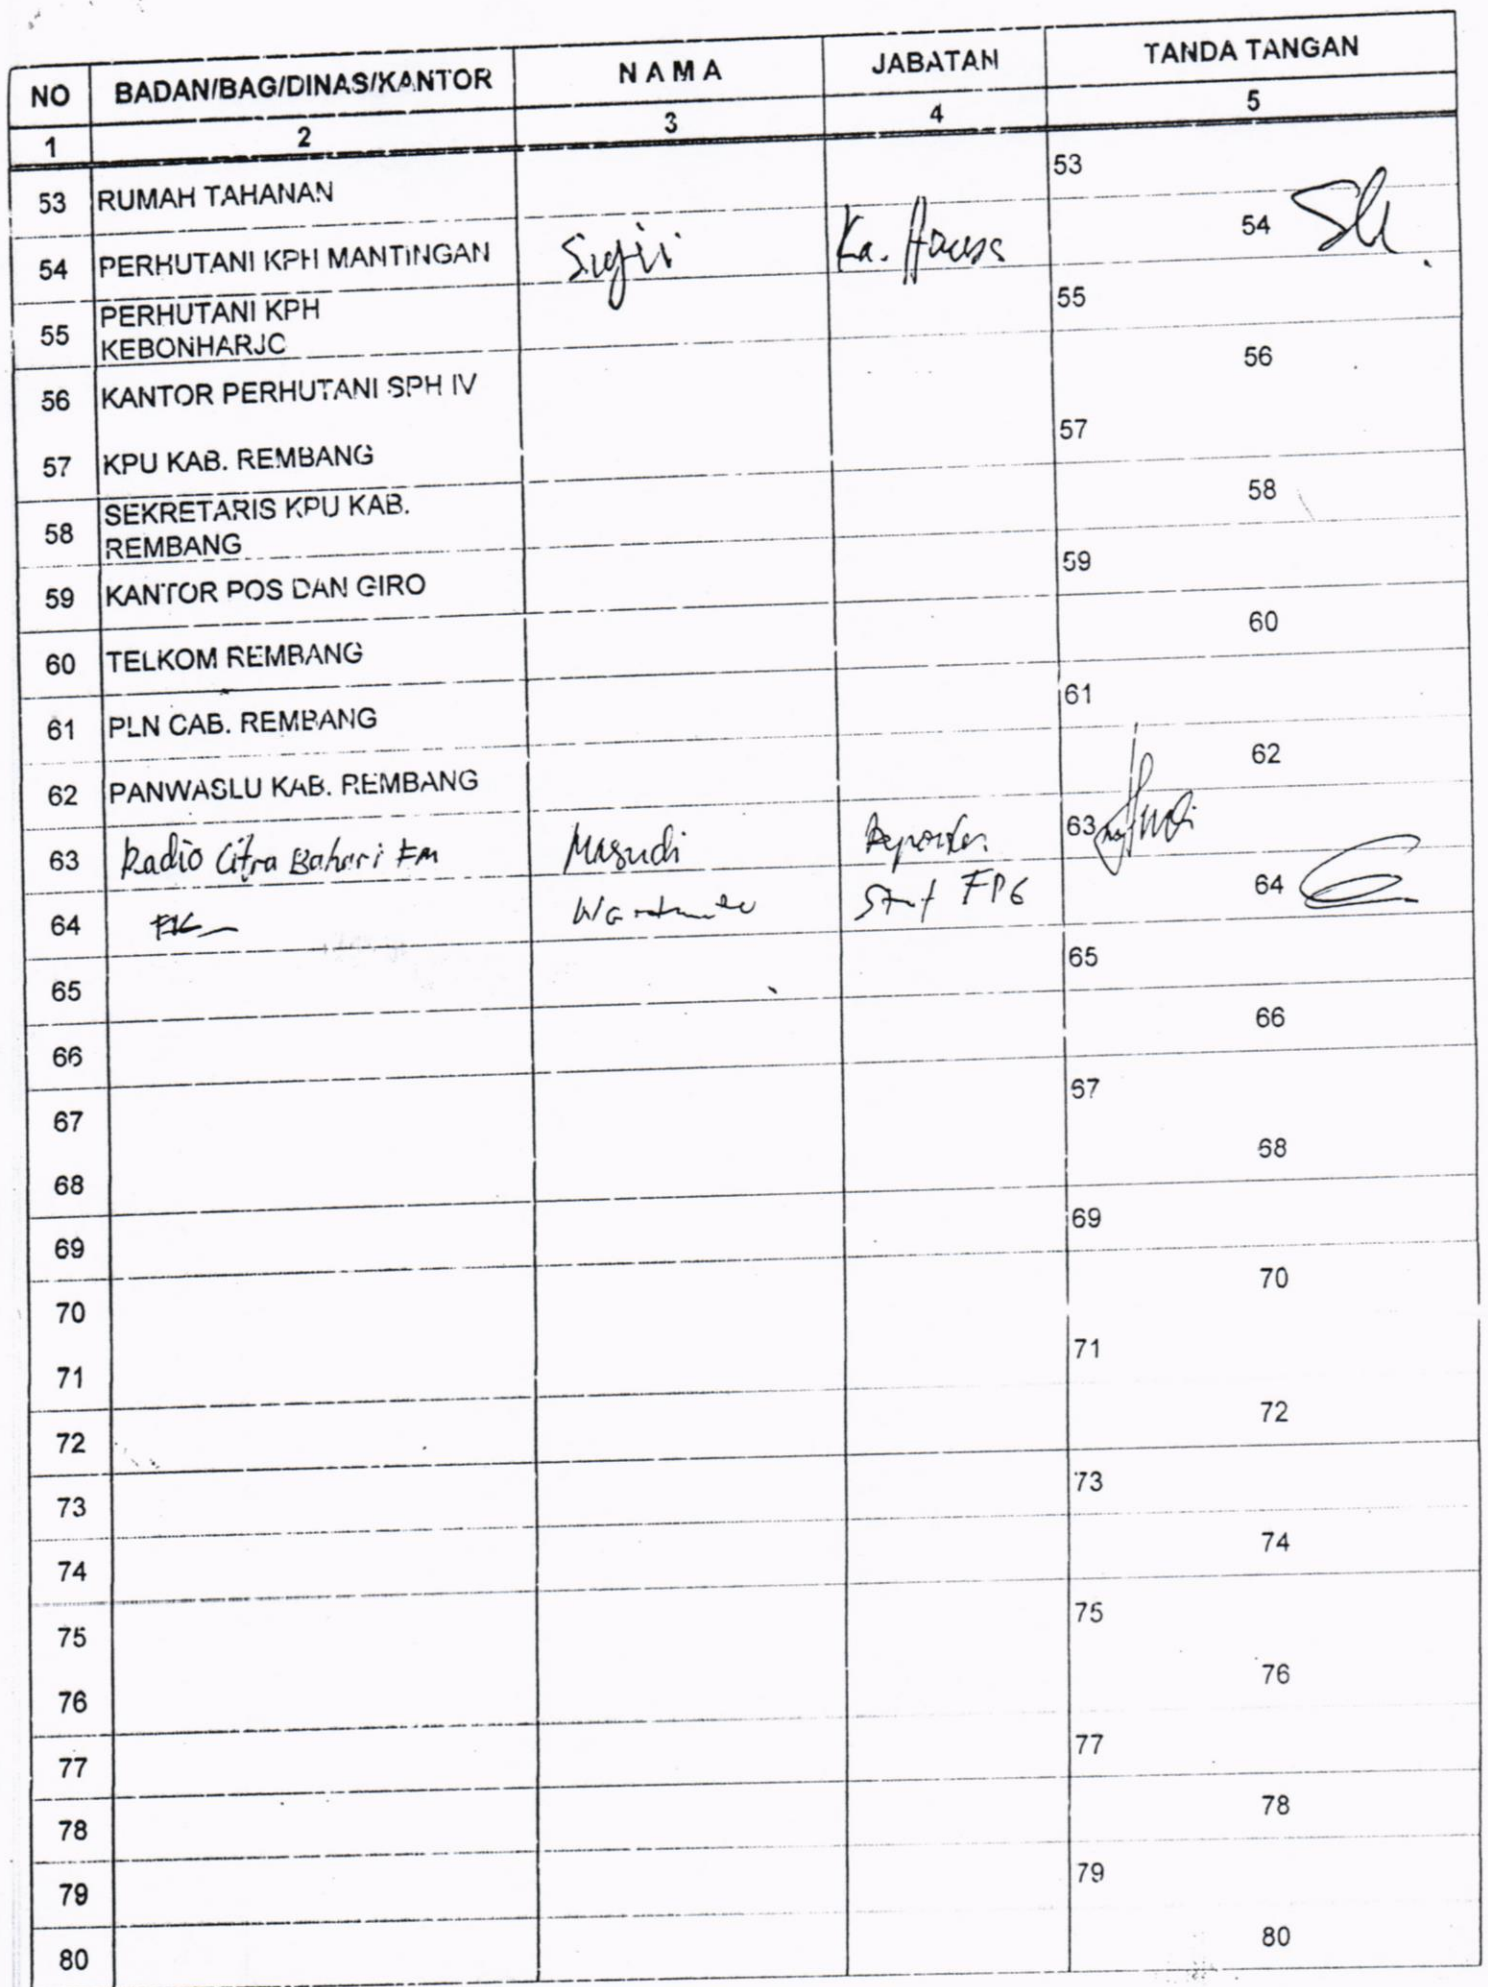 NO BADAN/BAG/DINAS/KANTOR N A M A JABATAN TANDA TANGAN
1 2 3 4 5
53 RUMAH TAHANAN 53
54 PERHUTANI KPH MANTINGAN Ka. 54
55 PERHUTANI KPH
KEBONHARJO 55
56 KANTOR PERHUTANI SPH IV 56
57 KPU KAB. REMBANG 57
58 SEKRETARIS KPU KAB.
REMBANG 58
59 KANTOR POS DAN GIRO 59
60 TELKOM REMBANG 60
61 PLN CAB. REMBANG 61
62 PANWASLU KAB. REMBANG 62
63 Radio Citra Bahari FM Masudi Reporter 63
64 64
65 65
66 66
67 67
68 68
69 69
70 70
71 71
72 72
73 73
74 74
75 75
76 76
77 77
78 78
79 79
80 80